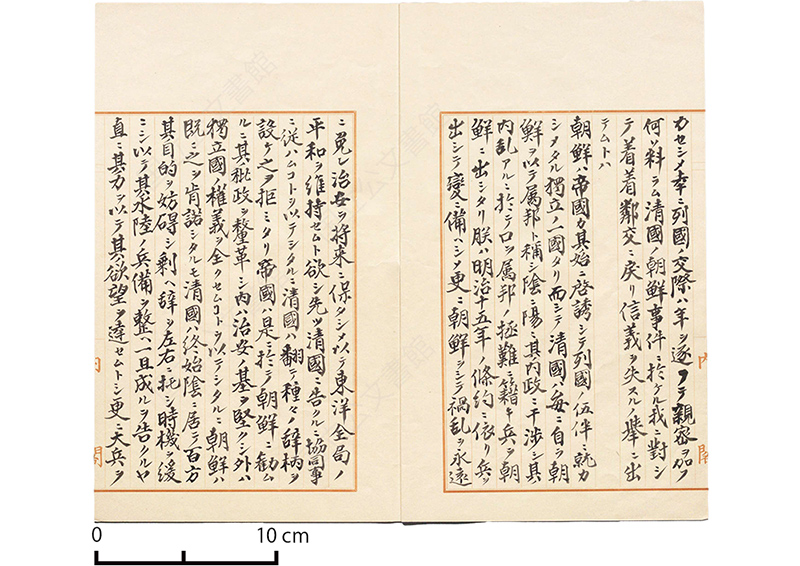 カセシメ幸ニ列國ノ交際ハ年ヲ逐フテ親密ヲ加フ
何ソ料ラム清國ノ朝鮮事件ニ於ケル我ニ對シ
テ着着鄰交ニ戻リ信義ヲ失スルノ擧ニ出
テムトハ
朝鮮ハ帝國カ其始ニ啓誘シテ列國ノ伍伴ニ就カ
シメタル獨立ノ一國タリ而シテ清國ハ毎ニ自ラ朝
鮮ヲ以テ属邦ト稱シ陰ニ陽ニ其内政ニ干渉シ其
内乱アルニ於テ口ヲ属邦ノ拯難ニ籍キ兵ヲ朝
鮮ニ出シタリ朕ハ明治十五年ノ條約ニ依リ兵ヲ
出シテ變ニ備ヘシメ更ニ朝鮮ヲシテ禍乱ヲ永遠
ニ免レ治安ヲ将來ニ保タシメ以テ東洋全局ノ
平和ヲ維持セムト欲シ先ツ清國ニ告クルニ協同事
ニ從ハムコトヲ以テシタルニ清國ハ翻テ種々ノ辞柄ヲ
設ケ之ヲ拒ミタリ帝國ハ是ニ於テ朝鮮ニ勧ム
ルニ其秕政ヲ釐革シ内ハ治安ノ基ヲ堅クシ外ハ
獨立國ノ權義ヲ全クセムコトヲ以テシタルニ朝鮮ハ
既ニ之ヲ肯諾シタルモ清國ハ終始陰ニ居テ百方
其目的ヲ妨碍シ剰ヘ辞ヲ左右ニ托シ時機ヲ緩
ニシ以テ其水陸ノ兵備ヲ整ヘ一旦成ルヲ告クルヤ
直ニ其力ヲ以テ其欲望ヲ達セムトシ更ニ大兵ヲ
0 10 cm